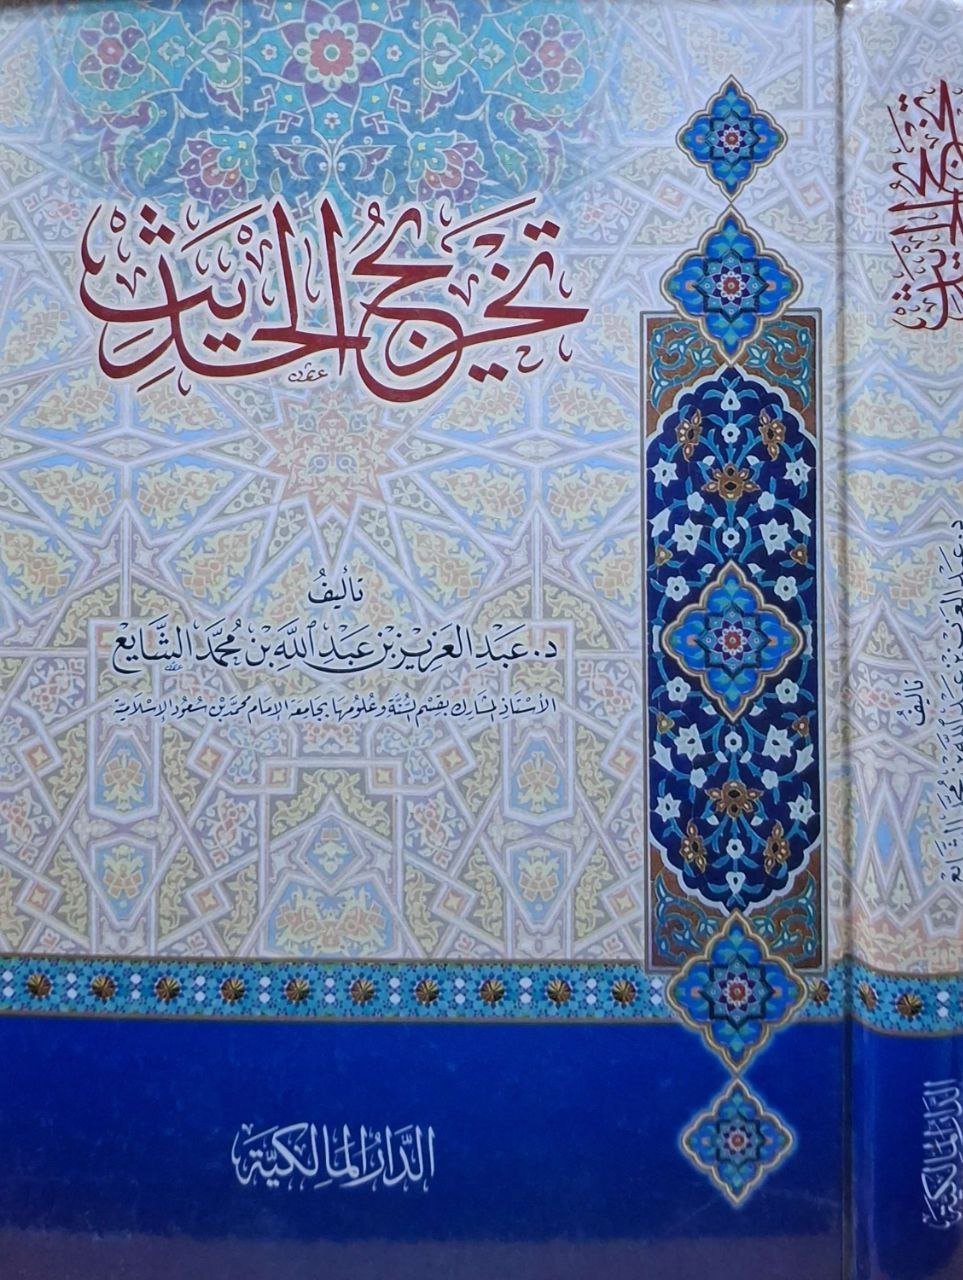 تخريج الحديث
تأليف
د. عبد العزيز بن عبد الله بن محمد الشايع
الأستاذ المشارك بقسم السنة وعلومها بجامعة الإمام محمد بن سعود الإسلامية
الدار المالكية
تخريج الحديث
تأليف
د. عبد العزيز بن عبد الله بن محمد الشايع
الدار المالكية